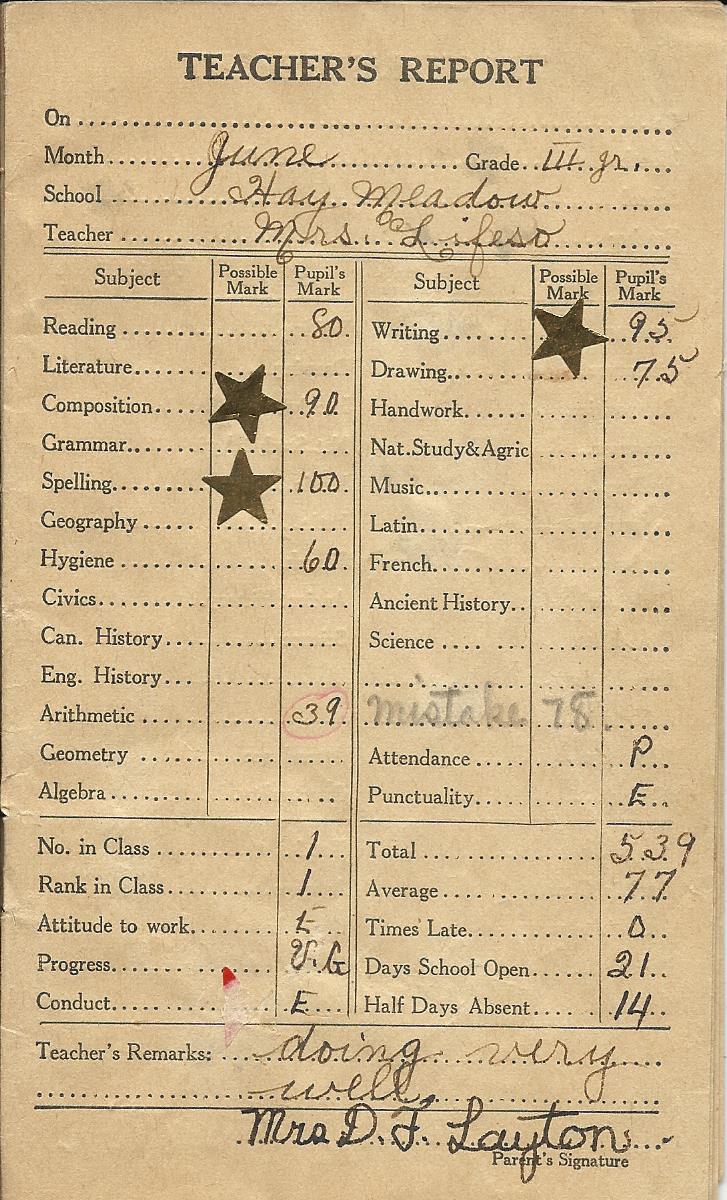 TEACHER'S REPORT
On
Month June Grade III gr.
School Hay Meadow
Teacher Mrs. Lifeso
Subject Possible Mark Pupil's Mark Subject Possible Mark Pupil's Mark
Reading 80 Writing 95
Literature Drawing 75
Composition 90 Handwork
Grammar Nat.Study&Agric
Spelling 100 Music
Geography Latin
Hygiene 60 French
Civics Ancient History
Can. History Science
Eng. History
Arithmetic 39 mistake 78.
Geometry Attendance P
Algebra Punctuality E
No. in Class 1 Total 539
Rank in Class 1 Average 77
Attitude to work E Times Late 0
Progress V.G Days School Open 21
Conduct E Half Days Absent 14
Teacher's Remarks: doing very
well.
Mrs D. F. Layton
Parent's Signature